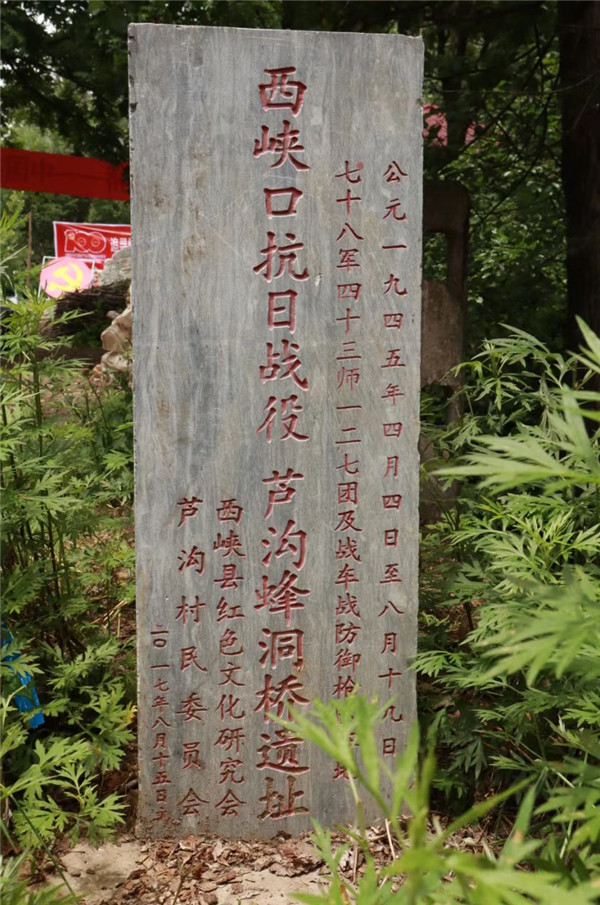 公元一九四五年四月四日至八月十九日
七十八军四十三师一二七团及战车战防御枪
西峡口抗日战役 芦沟蜂洞桥遗址
西峡县红色文化研究会
芦沟村民委员会
二〇一七年八月十五日
100